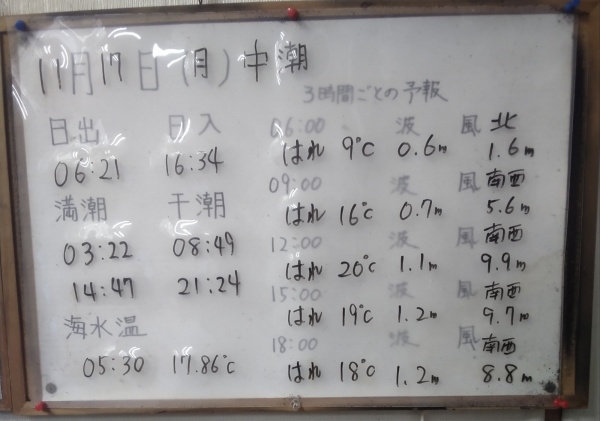 11月17日(月)中潮
3時間ごとの予報
日出 日入
06:21 16:34
満潮 干潮
03:22 08:49
14:47 21:24
海水温
05:30 17.86℃
06:00 波 風 北
はれ 9℃ 0.6m 1.6m
09:00 波 風 南西
はれ 16℃ 0.7m 5.6m
12:00 波 風 南西
はれ 20℃ 1.1m 9.9m
15:00 波 風 南西
はれ 19℃ 1.2m 9.7m
18:00 波 風 南西
はれ 18℃ 1.2m 8.8m